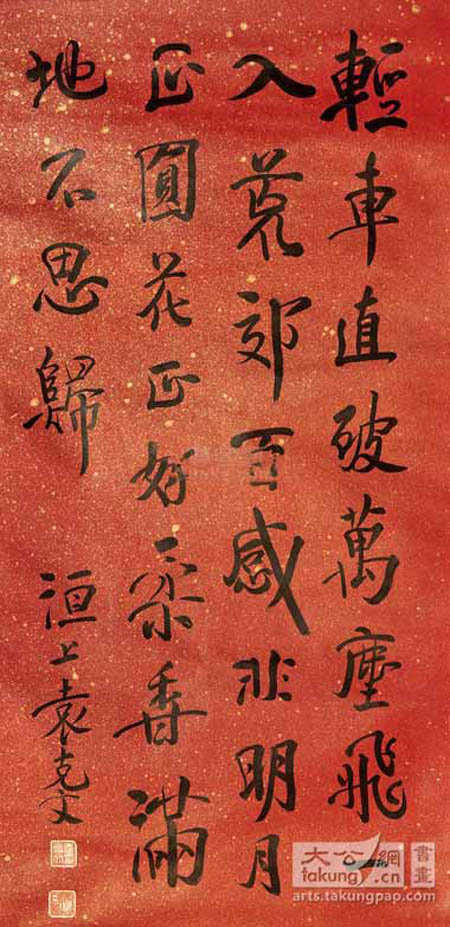 輕車直破萬塵飛
入荒郊百感非明月
正圓花正好香滿
地不思歸
洹上袁克文
大公網 書畫
takung.cn
arts.takungpao.com